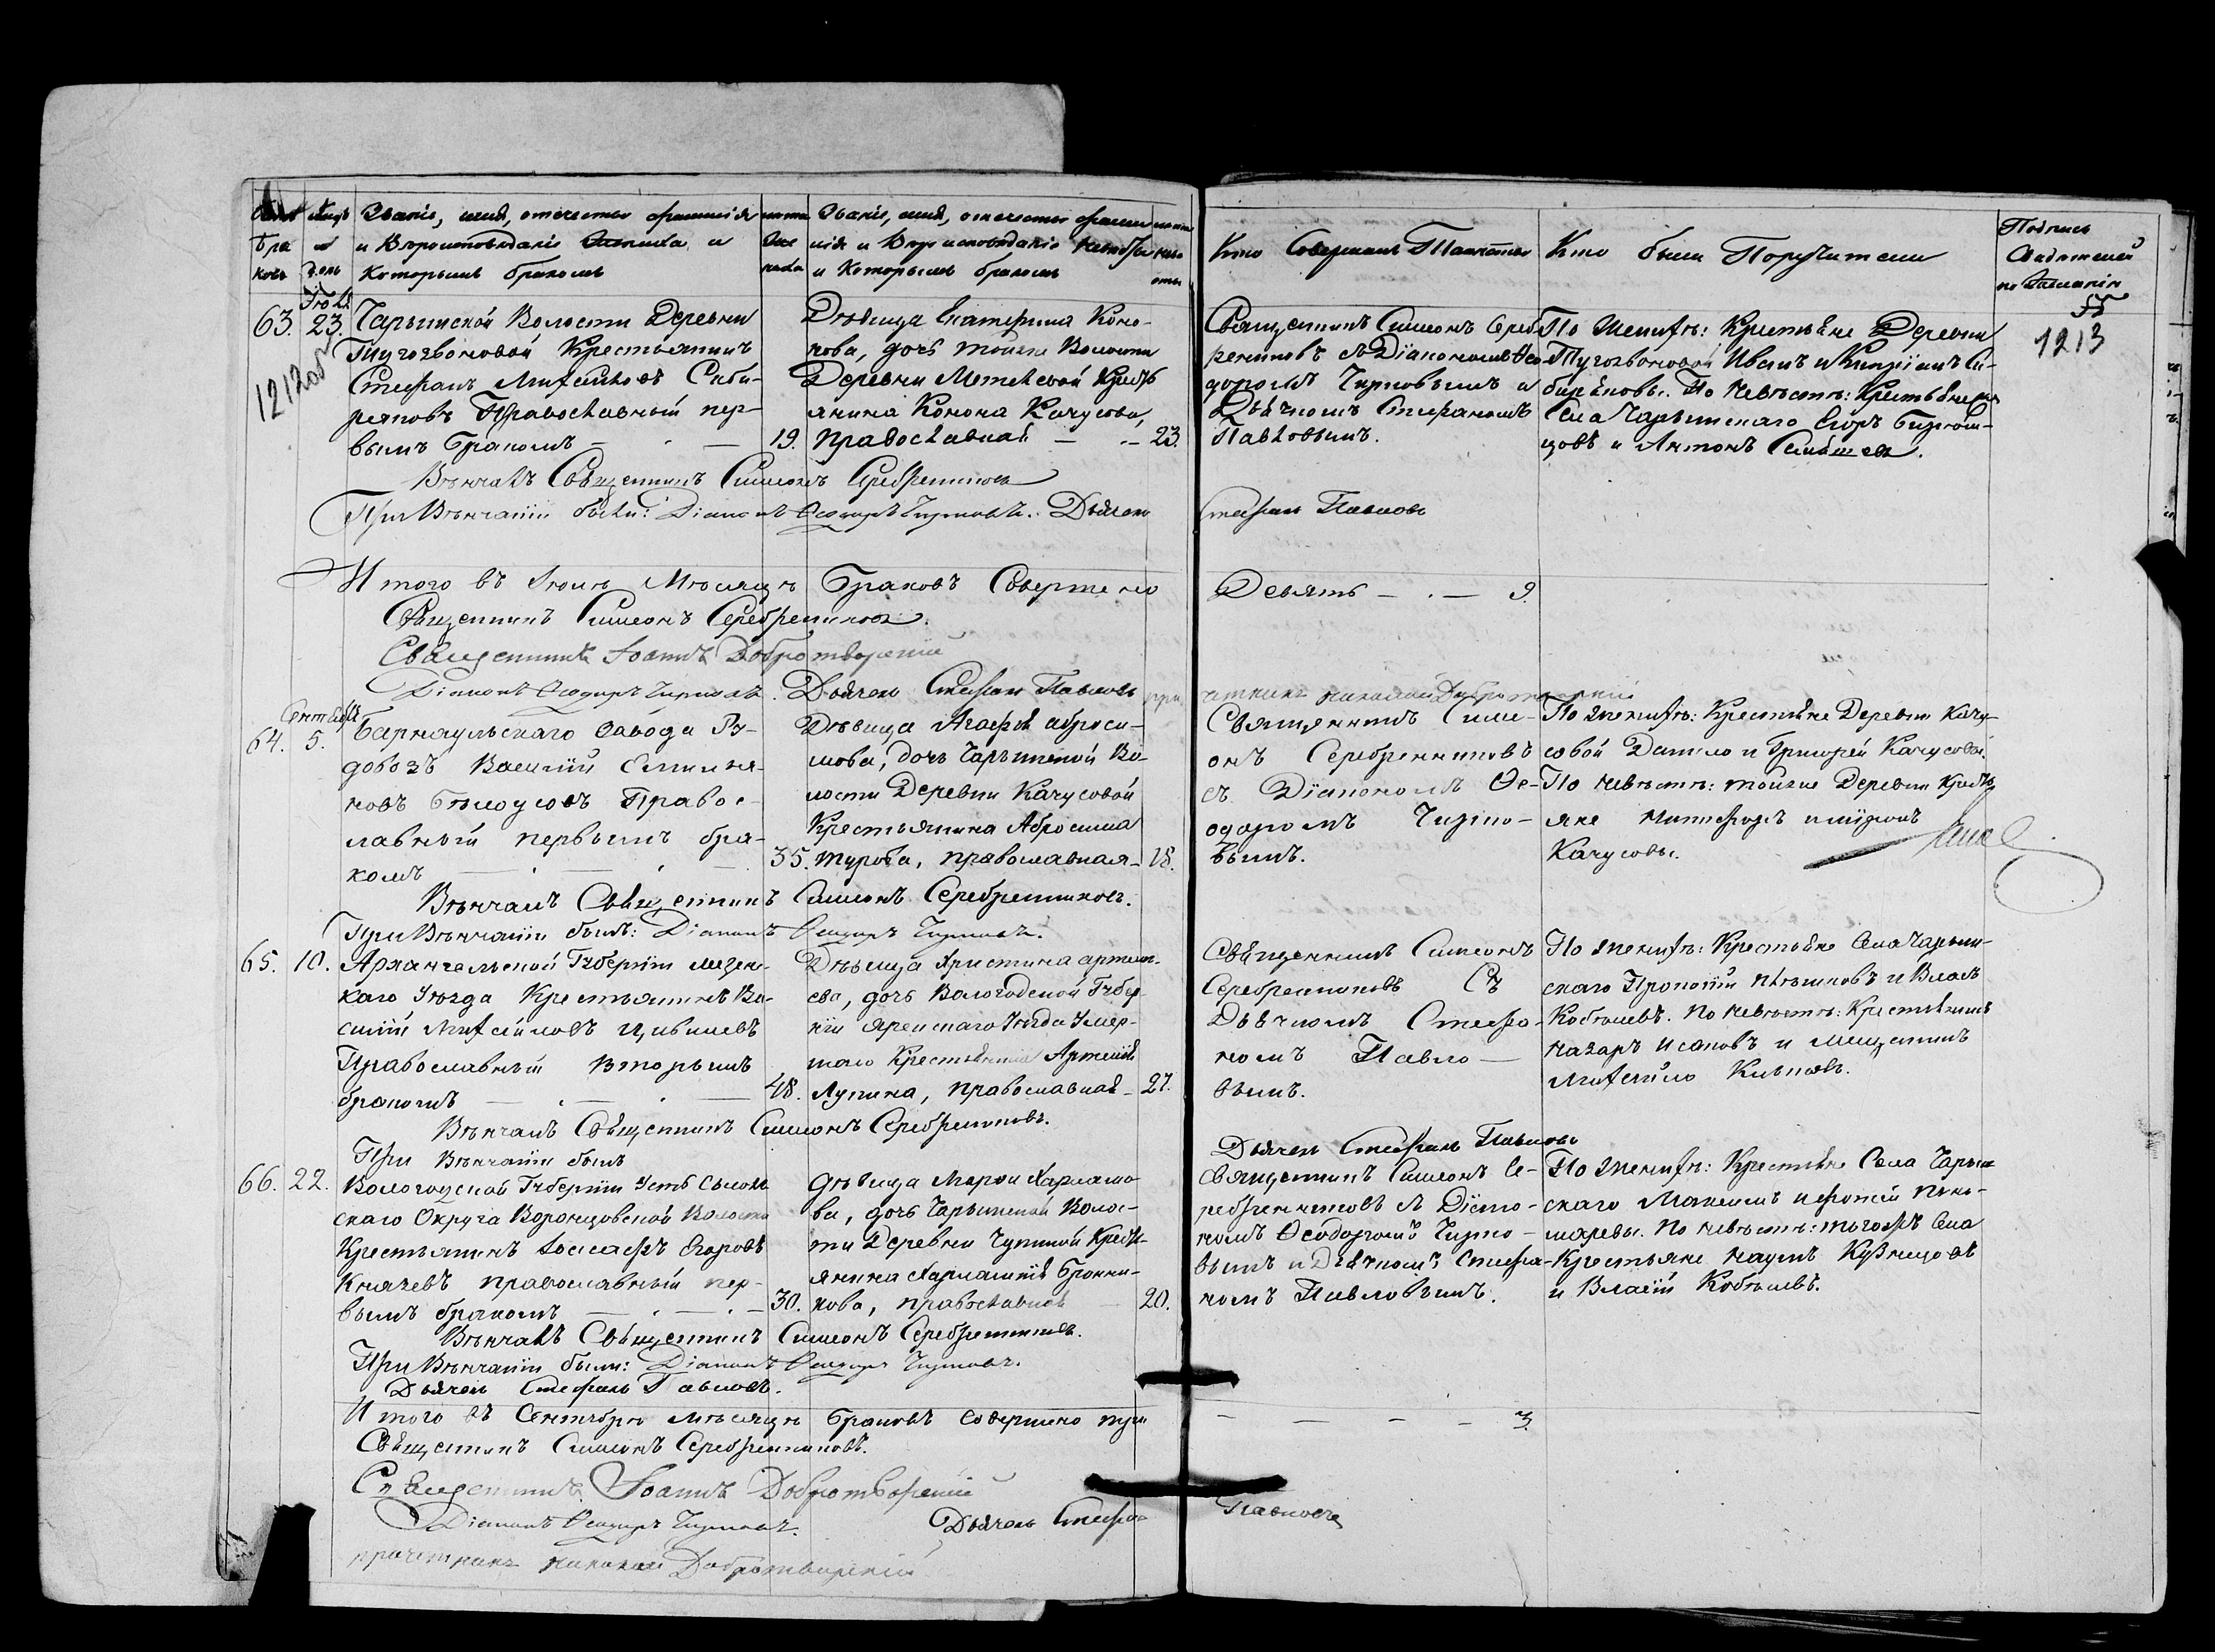 Звание, имя, отечество фамилия
и Вероисповедание Жениха и
которымъ бракомъ
Звание, имя, отечество фами
лия и Вероисповедание невесты
и которымъ бракомъ
Кто Совершалъ Таинство
Кто были Поручители
Подпись
Свидетелей
по Желанию
1213
1212об
63. Июль 23.
Чарышской Волости Деревни
Пугозвоновой Крестьянинъ
Стефанъ Михайловъ Сиби-
ряковъ Православный пер-
вымъ бракомъ — 19.
Девица Екатерина Коно-
нова, дочь тойже Волости
Деревни Крестъ
янина Конона Качусова,
православная — 23.
Священникъ Симеонъ Сереб-
рениковъ съ Диакономъ Ѳео
доромъ и
Дьячкомъ Стефаномъ
Павловымъ.
По Женихѣ: Крестьяне Деревни
Пугозвоновой Иванъ и Кипріянъ Си-
биряковы. По Невестѣ: Крестьяне
Села Чарышскаго Егоръ
и Антонъ
Вѣнчалъ Священникъ Симеонъ Серебрениковъ
При Вѣнчаніи были: Діаконъ Ѳеодоръ Дьячекъ
Стефанъ Павловъ
Итого въ Іюлѣ Мѣсяцѣ Браковъ Совершено
Девять — . — 9.
Священникъ Симеонъ Серебрениковъ.
Священникъ Іоаннъ Добротворскій
Діаконъ Ѳеодоръ Дьячекъ Стефанъ Павловъ
Николай Добротворскій
64. Сентябрь 5.
Барнаульскаго завода Ру-
довозъ Василій Емилья-
новъ Бѣлоусовъ Правос-
лавный первымъ бра-
комъ — 35.
Дѣвица Агафья Аброси-
мова, дочь Чарышской Во-
лости Деревни Качусовой
Крестьянина Абросима
Турова, православная — 18.
Священникъ Симе-
онъ Серебренниковъ
съ Діакономъ Ѳе-
одоромъ
вымъ.
По женихѣ: Крестьяне Деревни Качу-
совой Данило и Григорей Качусовы.
По невѣстѣ: тойже Деревни Кресть
яне и Миронъ
Качусовы.
Вѣнчалъ Священникъ Симеонъ Серебрениковъ.
При Вѣнчаніи былъ: Діаконъ Ѳеодоръ
65. 10.
Архангельской Губерніи Мезен-
каго Уѣзда Крестьянинъ Ва-
силій Михайловъ
Православный Вторымъ
бракомъ — 48.
Дѣвица Христина Артем-
ева, дочь Вологодской Губер
ніи Яренскаго Уѣзда Умер-
шаго Крестьянина Артемія
Лупина, православная — 27.
Священникъ Симеонъ
Серебренниковъ Съ
Дьячкомъ Стефа-
номъ Павло-
вымъ.
По женихѣ: Крестьяне Села Чарыш-
скаго Прокопій и Власъ
Кобылевъ. По невѣстѣ: Крестьянинъ
Назаръ Исаковъ и Мещанинъ
Михайло
Вѣнчалъ Священникъ Симеонъ Серебрениковъ.
При Вѣнчаніи былъ
Дьячекъ Стефанъ Павловъ
66. 22.
Вологодской Губерніи Усть Сысоль
скаго Округа Воронцовской Волости
Крестьянинъ Іосафъ Егоровъ
Князевъ православный пер-
вымъ бракомъ — 30.
Дѣвица Марѳа Харлампо
ва, дочь Чарышской Волос-
ти Деревни Чупиной Кресть
янина Харлампія Бронни-
кова, православная — 20.
Священникъ Симеонъ Се-
ребренниковъ съ Діако-
номъ Ѳеодоромъ
вымъ и Дьячкомъ Стефа-
номъ Павловымъ.
По женихѣ: Крестьяне Села Чарыш
скаго Максимъ и Фотій Поно-
маревы. По невѣстѣ: тогожъ Села
Крестьяне Наумъ Кузнецовъ
и Власій Кобылевъ.
Вѣнчалъ Священникъ Симеонъ Серебренниковъ.
При Вѣнчаніи были: Діаконъ Ѳеодоръ
Дьячекъ Стефанъ Павловъ.
Итого въ Сентябрѣ мѣсяцѣ браковъ совершено три
— — — — 3.
Священникъ Симеонъ Серебренниковъ.
Священникъ Іоаннъ Добротворскій
Діаконъ Ѳеодоръ
Дьячекъ Стефанъ Павловъ
причетникъ Николай Добротворскій